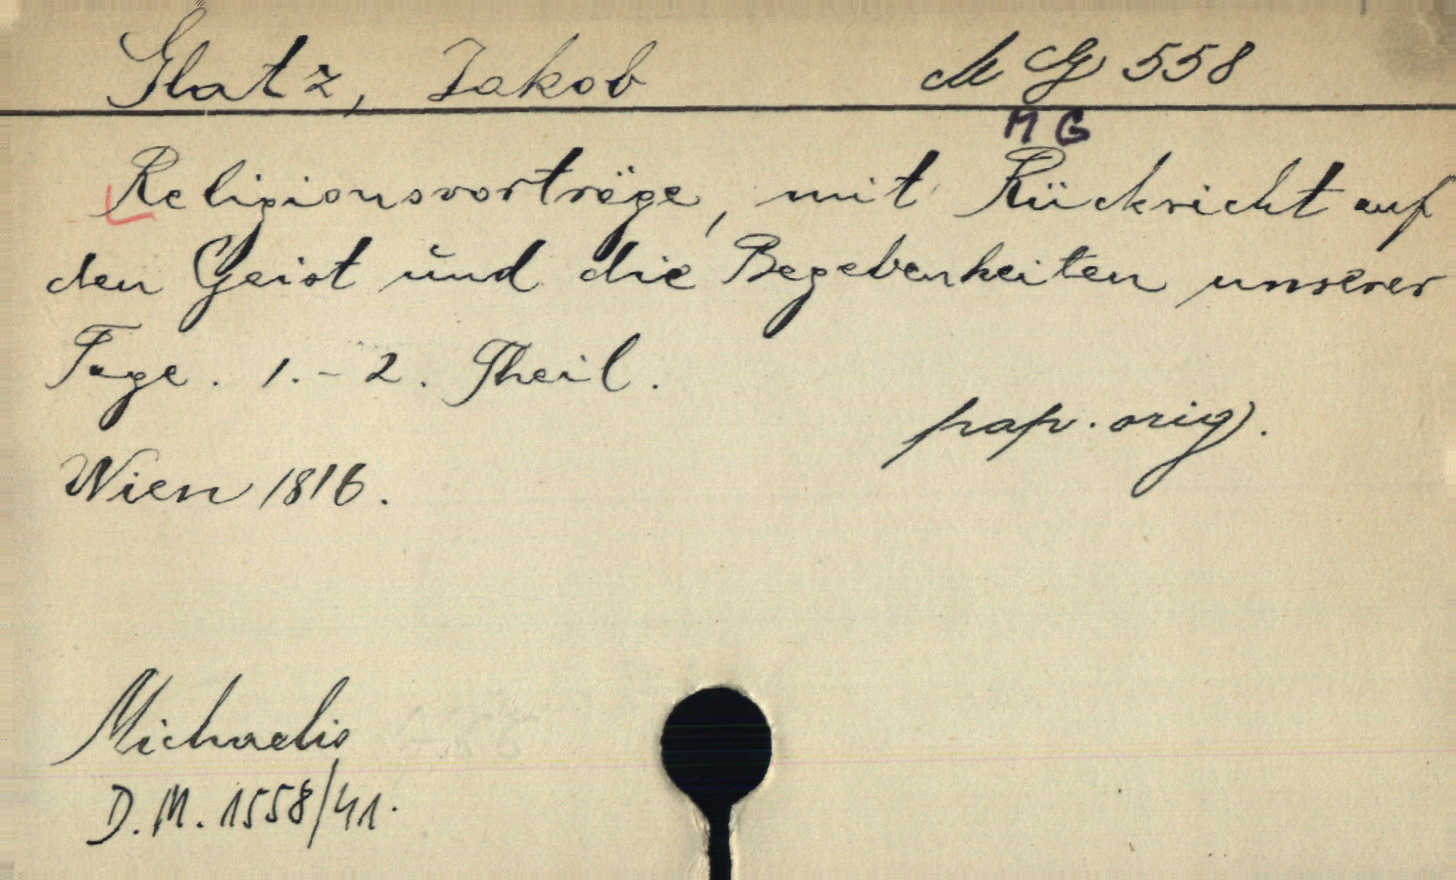 Glatz, Jakob M G 558
M G
Religionsvorträge, mit Rücksicht auf
den Geist und die Begebenheiten unserer
Tage. 1.-2. Theil.
pap. orig.
Wien 1816.
Michaelis
D.M. 1558/41.